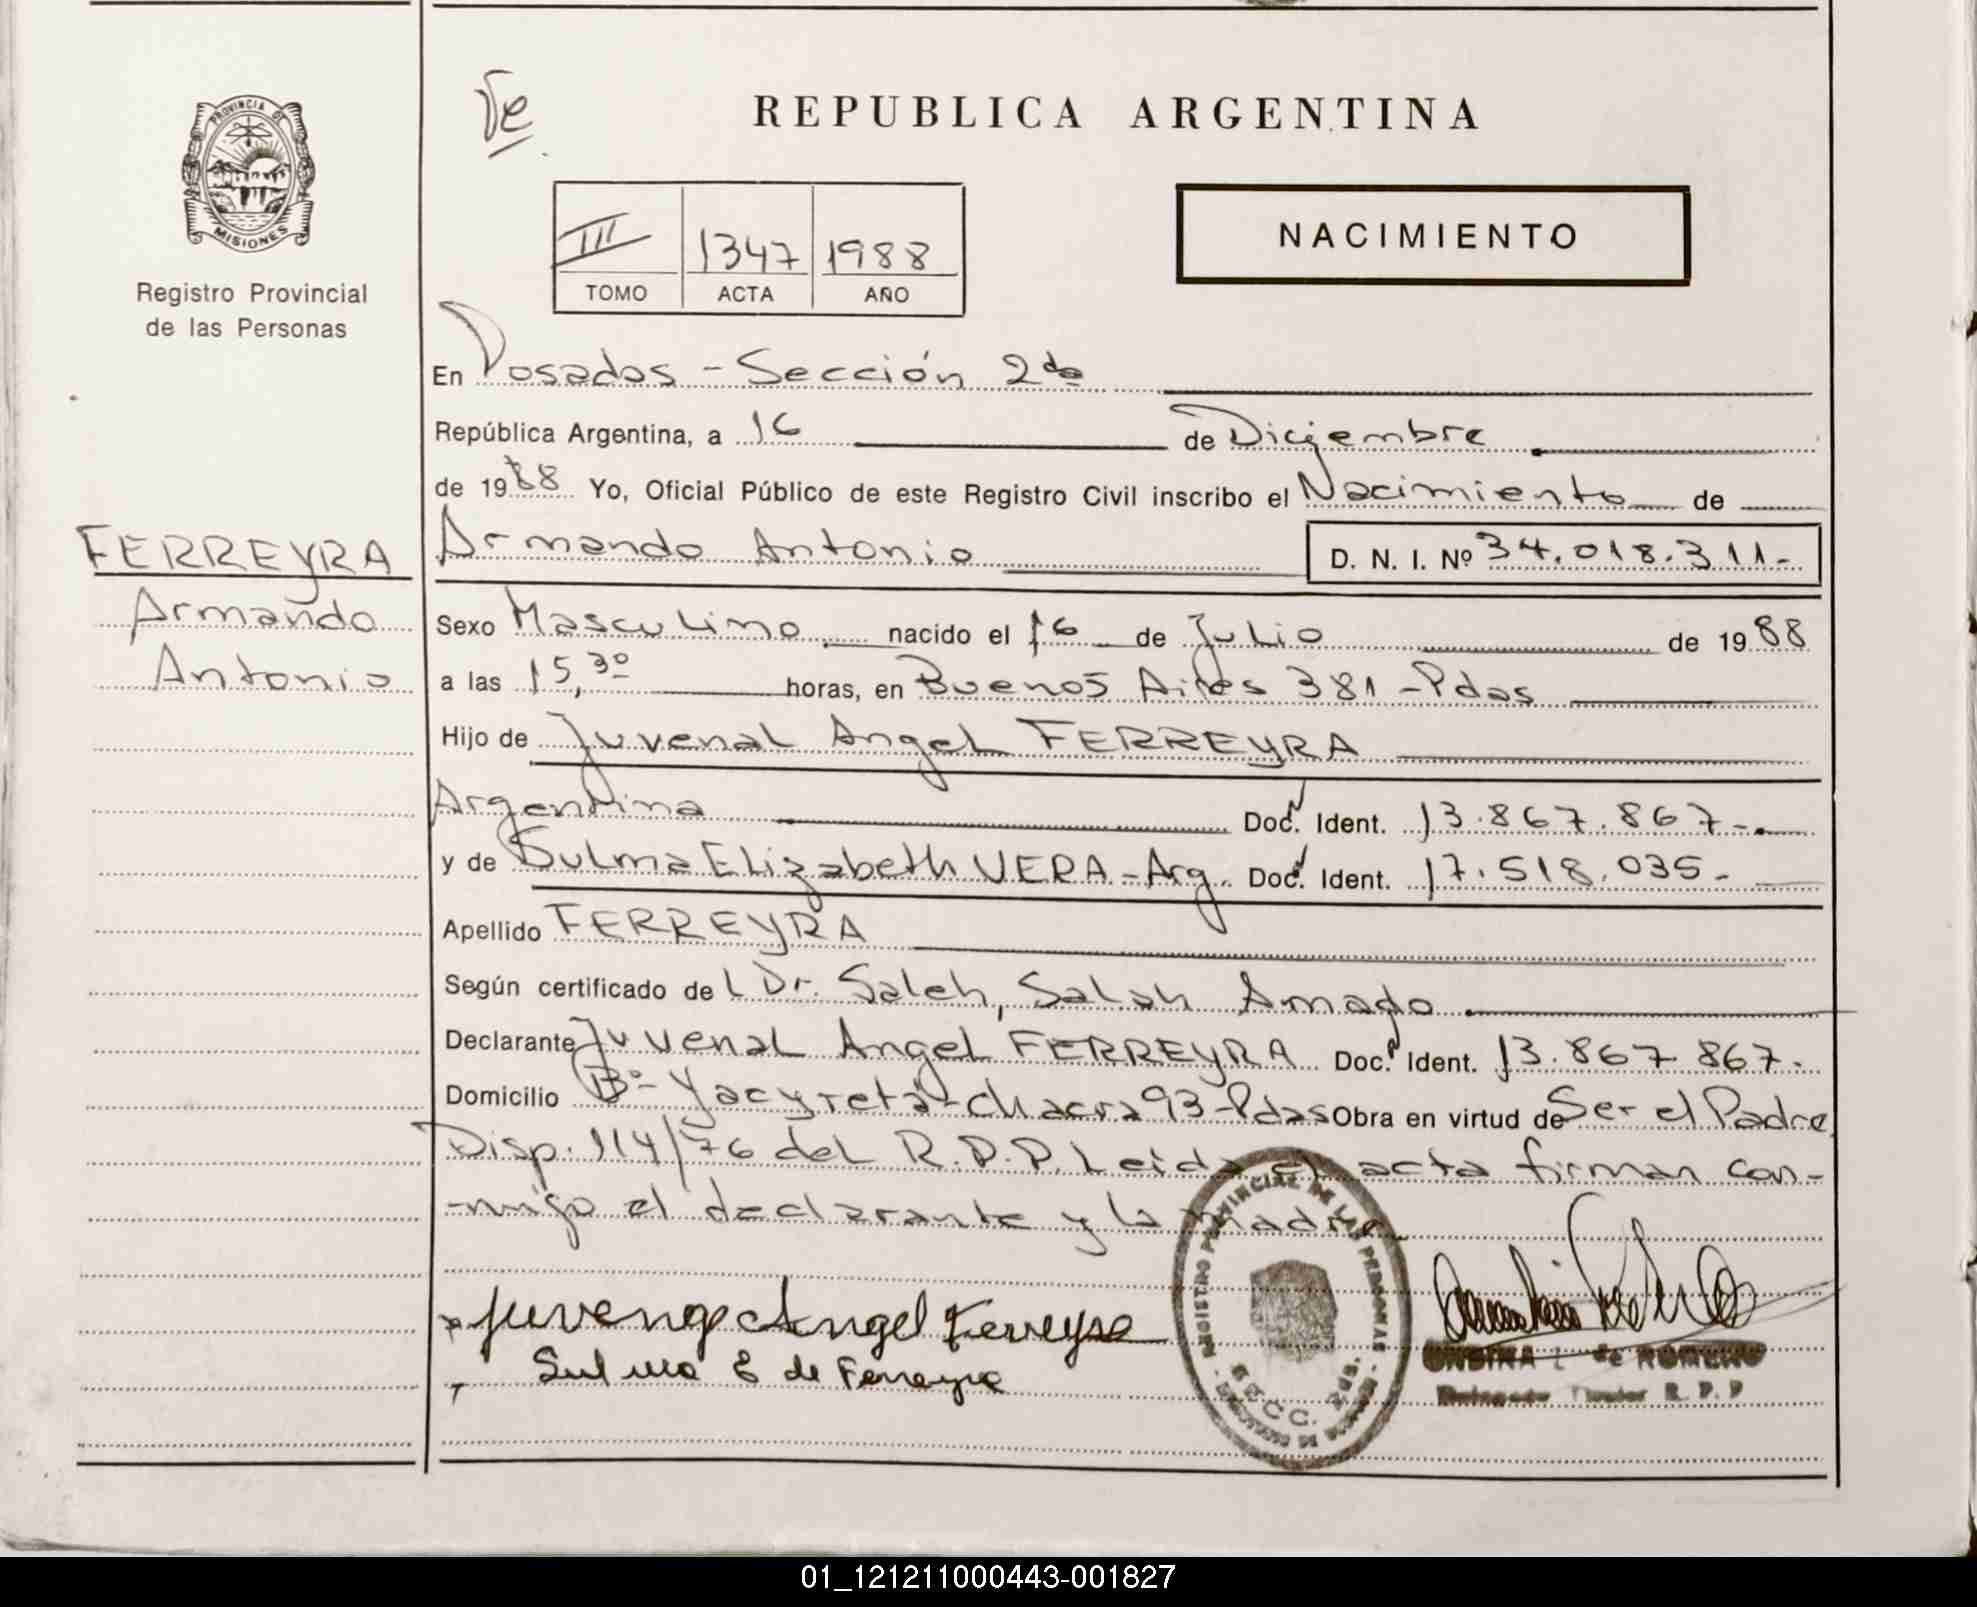 Ve
REPUBLICA ARGENTINA
PROVINCIA DE
MISIONES
Registro Provincial
de las Personas
III 1347 1988
TOMO ACTA AÑO
NACIMIENTO
En Posadas - Sección 2da
República Argentina, a 16 de Diciembre
de 1988 Yo, Oficial Público de este Registro Civil inscribo el Nacimiento de
FERREYRA
Armando
Antonio
Armando Antonio D. N. I. Nº 34.018.311-
Sexo Masculino nacido el 16 de Julio de 1988
a las 15,30 horas, en Buenos Aires 381 - Pdas
Hijo de Juvenal Angel FERREYRA
Argentina Doc. Ident. 13.867.867-
y de Sulma Elizabeth VERA - Arg. Doc. Ident. 17.518.035-
Apellido FERREYRA
Según certificado del Dr. Saleh, Salah Amado
Declarante Juvenal Angel FERREYRA Doc. Ident. 13.867.867.
Domicilio Bº- Yacyretá - chacra 93 - Pdas Obra en virtud de Ser el Padre
Disp. 114/76 del R.P.P. Leida el acta firman con-
-migo el declarante y la madre
Juvenal Angel Ferreyra
Sulma E de Ferreyra
REGISTRO PROVINCIAL DE LAS PERSONAS
SECC. 2da.
ONDINA de ROMERO
Delegado Titular R. P. P
01_121211000443-001827